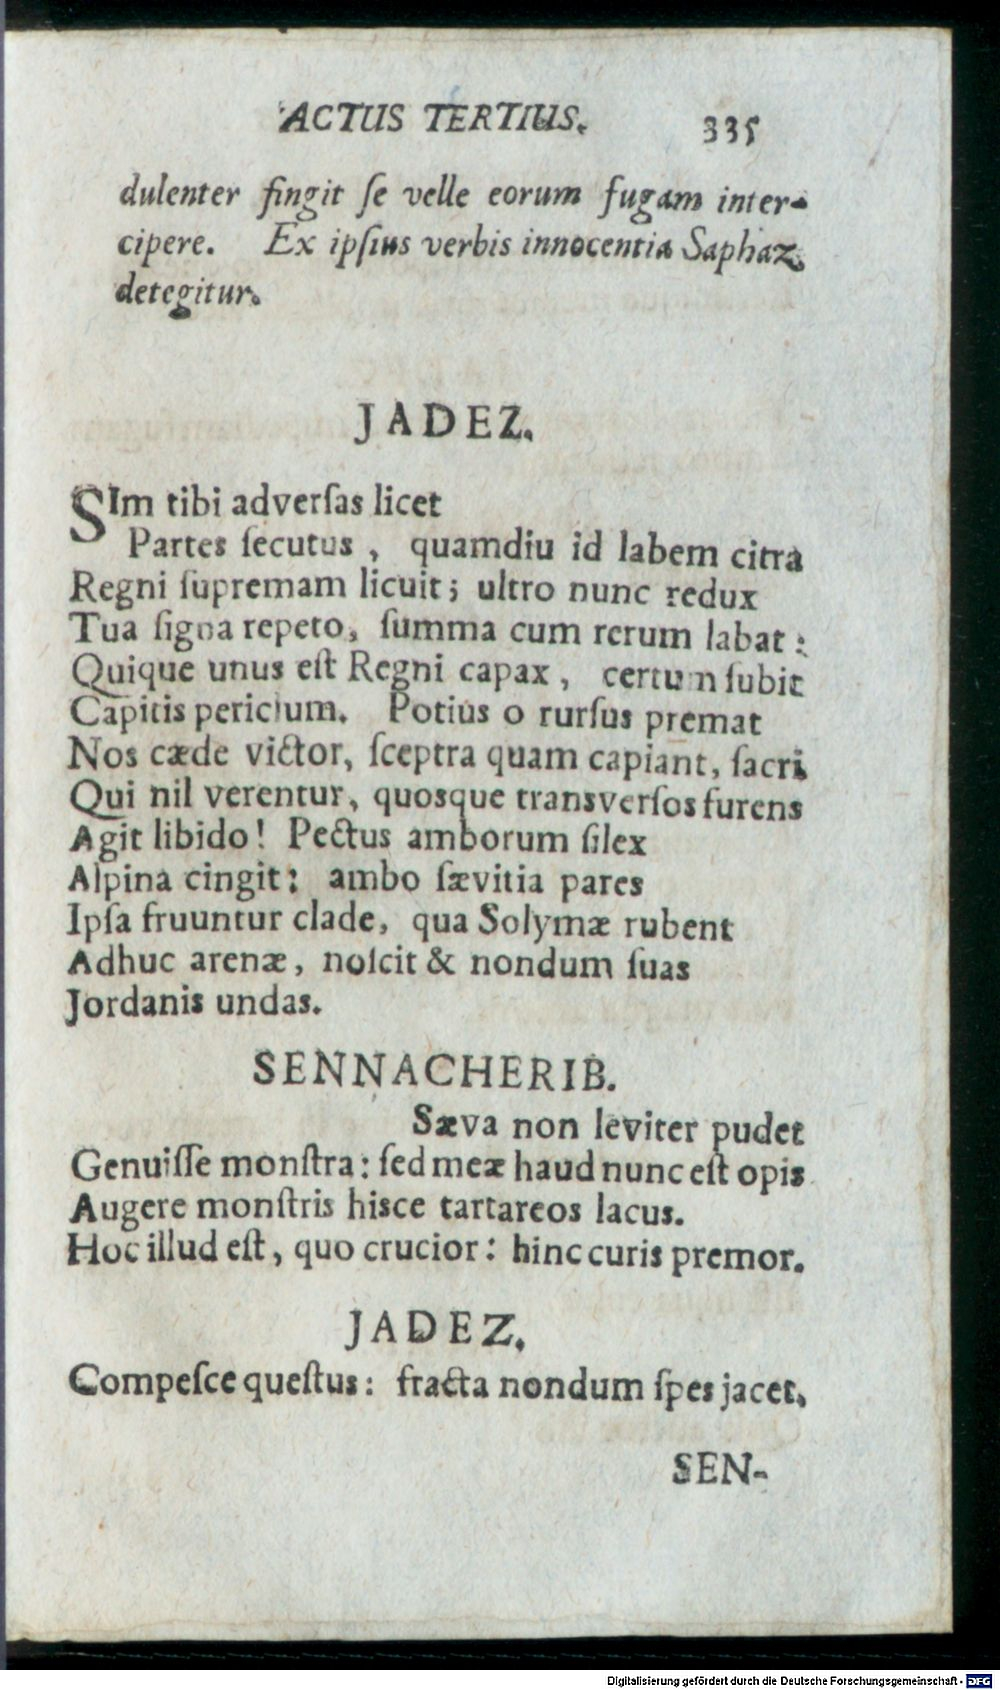 ACTUS TERTIUS. 335
dulenter fingit ſe velle eorum fugam inter-
cipere. Ex ipſius verbis innocentia Saphaz
detegitur.
JADEZ.
SIm tibi adverſas licet
Partes ſecutus, quamdiu id labem citra
Regni ſupremam licuit; ultro nunc redux
Tua ſigna repeto, ſumma cum rerum labat:
Quique unus eſt Regni capax, certum ſubit
Capitis periclum. Potius o rurſus premat
Nos cæde victor, ſceptra quam capiant, ſacri
Qui nil verentur, quosque transverſos furens
Agit libido! Pectus amborum ſilex
Alpina cingit: ambo ſævitia pares
Ipſa fruuntur clade, qua Solymæ rubent
Adhuc arenæ, noſcit & nondum ſuas
Jordanis undas.
SENNACHERIB.
Sæva non leviter pudet
Genuiſſe monſtra: ſed meæ haud nunc eſt opis
Augere monſtris hisce tartareos lacus.
Hoc illud eſt, quo crucior: hinc curis premor.
JADEZ.
Compeſce queſtus: fracta nondum ſpes jacet.
SEN-
Digitalisierung gefördert durch die Deutsche Forschungsgemeinschaft - DFG